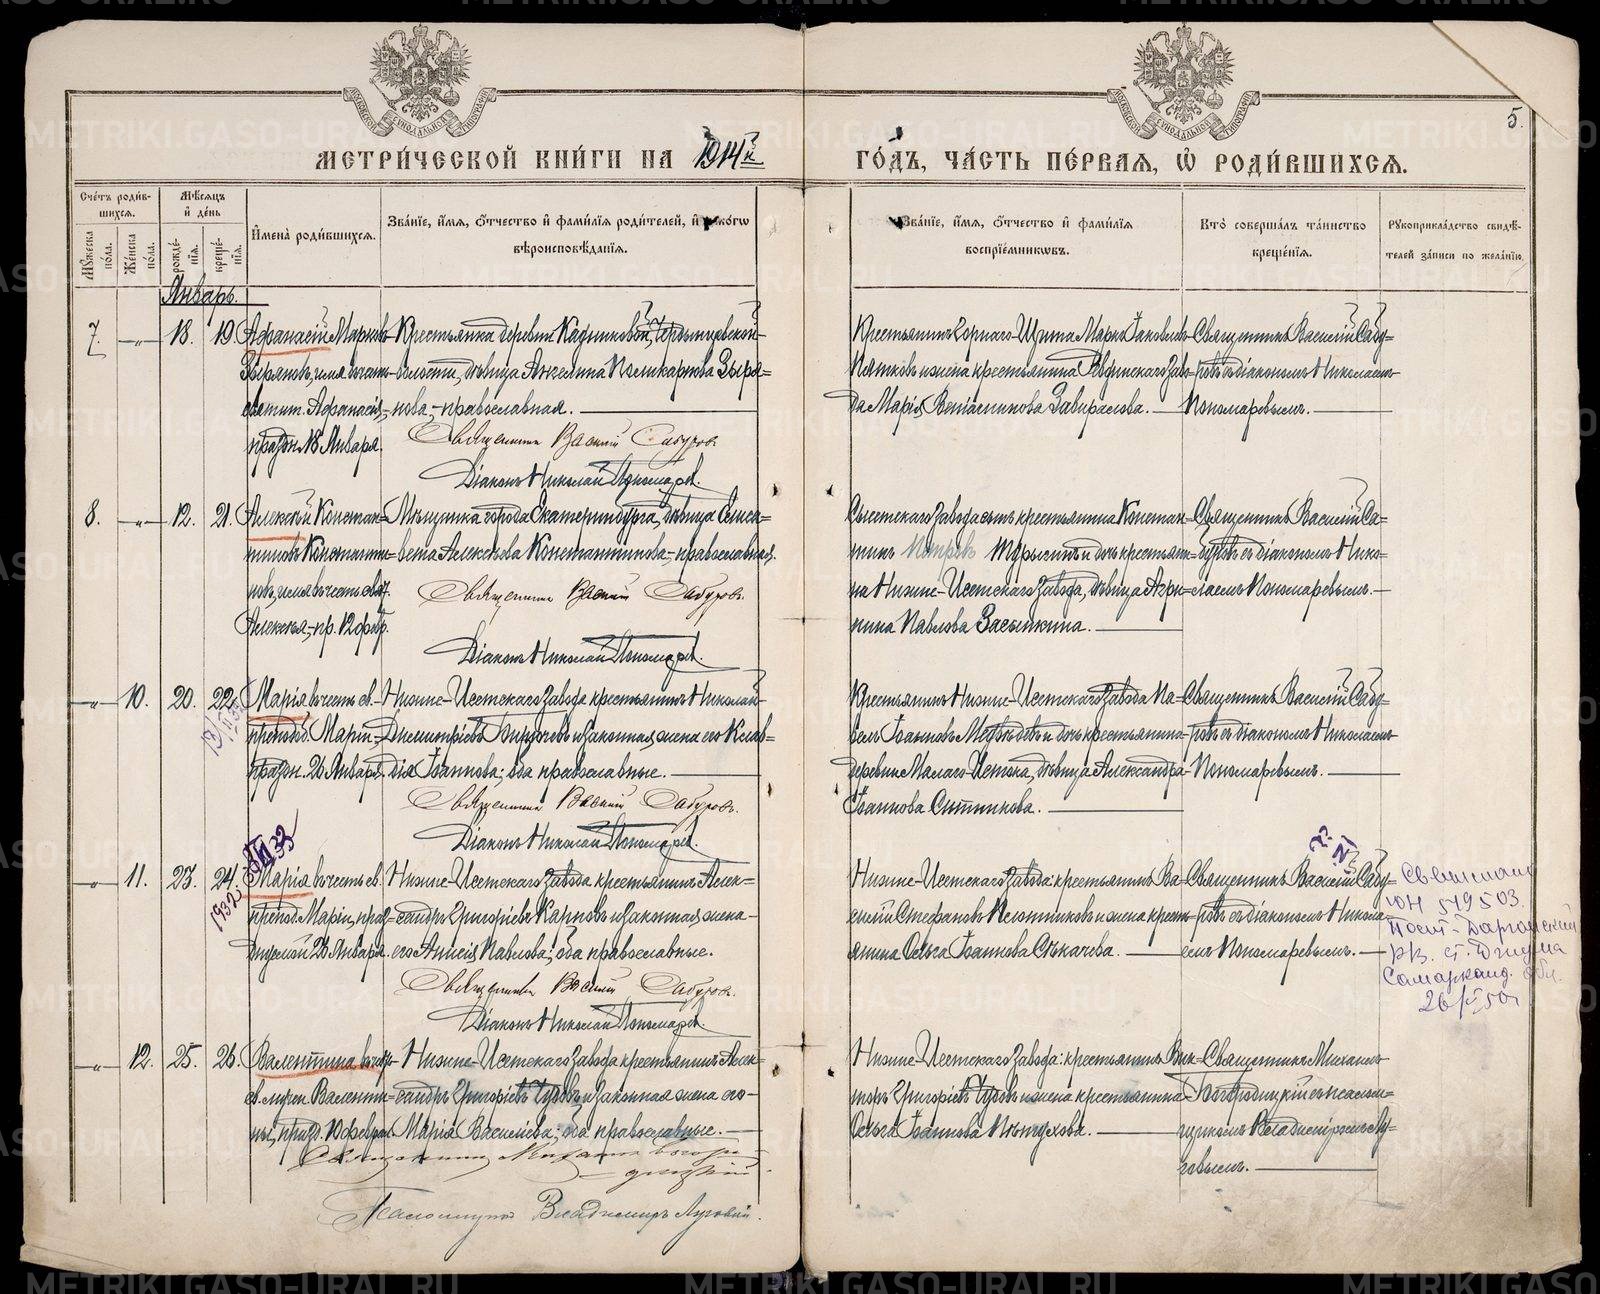 МЕТРИ́ЧЕСКОЙ КНИ́ГИ НА 1914й
ГО́ДЪ, ЧА́СТЬ ПЕ́РВАЯ, Ѡ҆ РОДИ́ВШИХСЯ.
5.
Сче́тъ роди́вшихся.
Му́жеска по́ла.
Же́нска по́ла.
Мѣ́сяцъ и҆ де́нь
рожде́нїя.
креще́нїя.
И҆мена̀ роди́вшихся.
Зва́нїе, и҆́мя, ѻ҆́тчество и҆ фами́лїя роди́телей, и҆ како́гѡ
вѣроисповѣ́данїя.
Зва́нїе, и҆́мя, ѻ҆́тчество и҆ фами́лїя
воспрїе́мникѡвъ.
Кто̀ соверша́лъ та́инство
креще́нїя.
Рꙋкоприкла́дство свидѣ́-
телей за́писи по жела́нїю.
Январь.
7. —„— 18. 19.
Афанасій Марковъ
Зыряновъ, имя въ честь
святит. Афанасія,-
праздн. 18 Января.
Крестьянка деревни Кадниковой,
волости, дѣвица Ангелина Поликарпова Зыря=
нова,- православная.
Священникъ Василій Сабуровъ
Діаконъ Николай Пономаревъ.
Крестьянинъ Горнаго-Щита Маркъ Іаковлевъ
Пятковъ и жена крестьянина Ревдинскаго заво-
да Марія Веніаминова Завиралова.
Священникъ Василій Сабу=
ровъ съ діакономъ Николаемъ
Пономаревымъ.
8. —„— 12. 21.
Алексій Констан=
тиновъ Константи=
новъ, имя въ честь свят.
Алексія,- пр. 12 февр.
Мѣщанка города Екатеринбурга, дѣвица Елиса=
вета Алексѣева Константинова,- православная.
Священникъ Василій Сабуровъ.
Діаконъ Николай Пономаревъ.
Сысетскаго завода сынъ крестьянина Констан=
тинъ Петровъ Турыгинъ и дочь крестьяни=
на Нижне-Исетскаго завода, дѣвица Агри=
пина Павлова Засыпкина.
Священникъ Василій Са=
буровъ съ діакономъ Нико=
лаемъ Пономаревымъ.
—„— 10. 20. 22.
Марія въ честь св.
преподоб. Маріи,-
праздн. 26 Января.
Нижне-Исетскаго завода крестьянинъ Николай
Димитріевъ и законная жена его Клав=
дія Іоаннова; оба православные.
Священникъ Василій Сабуровъ.
Діаконъ Николай Пономаревъ.
Крестьянинъ Нижне-Исетскаго завода Па=
велъ Іоанновъ Медвѣдевъ и дочь крестьянина
деревни Малаго-Истока, дѣвица Александра
Іоаннова Ситникова.
Священникъ Василій Сабу=
ровъ съ діакономъ Николаемъ
Пономаревымъ.
1932
—„— 11. 23. 24.
Марія въ честь св.
препод. Маріи, праз=
днуемой 26 Января.
Нижне-Исетскаго завода крестьянинъ Алек=
сандръ Григоріевъ Карповъ и законная жена
его Анисія Павлова; оба православные.
Священникъ Василій Сабуровъ.
Діаконъ Николай Пономаревъ.
Нижне-Исетскаго завода: крестьянинъ Ва=
силій Стефановъ Плотниковъ и жена кресть=
янина Ольга Іоаннова Сѣкачова.
Священникъ Василій Сабу=
ровъ съ діакономъ Никола=
емъ Пономаревымъ.
ЮН 519503.
Самарканд. обл.
—„— 12. 25. 26.
Валентина въ честь
св. мучен. Валенти=
ны, празд. 10 февраля.
Нижне-Исетскаго завода крестьянинъ Алек=
сандръ Григоріевъ Чудовъ и законная жена его
Марія Василіева; оба православные.
Священникъ Михаилъ Богоро=
дицкій.
Псаломщикъ Владимиръ Луговый.
Нижне-Исетскаго завода: крестьянинъ Вик=
торъ Григоріевъ Чудовъ и жена крестьянина
Ольга Іоаннова Пѣтухова.
Священникъ Михаилъ
Богородицкій съ псалом=
щикомъ Владиміромъ Лу=
говымъ.
METRIKI.GASO-URAL.RU